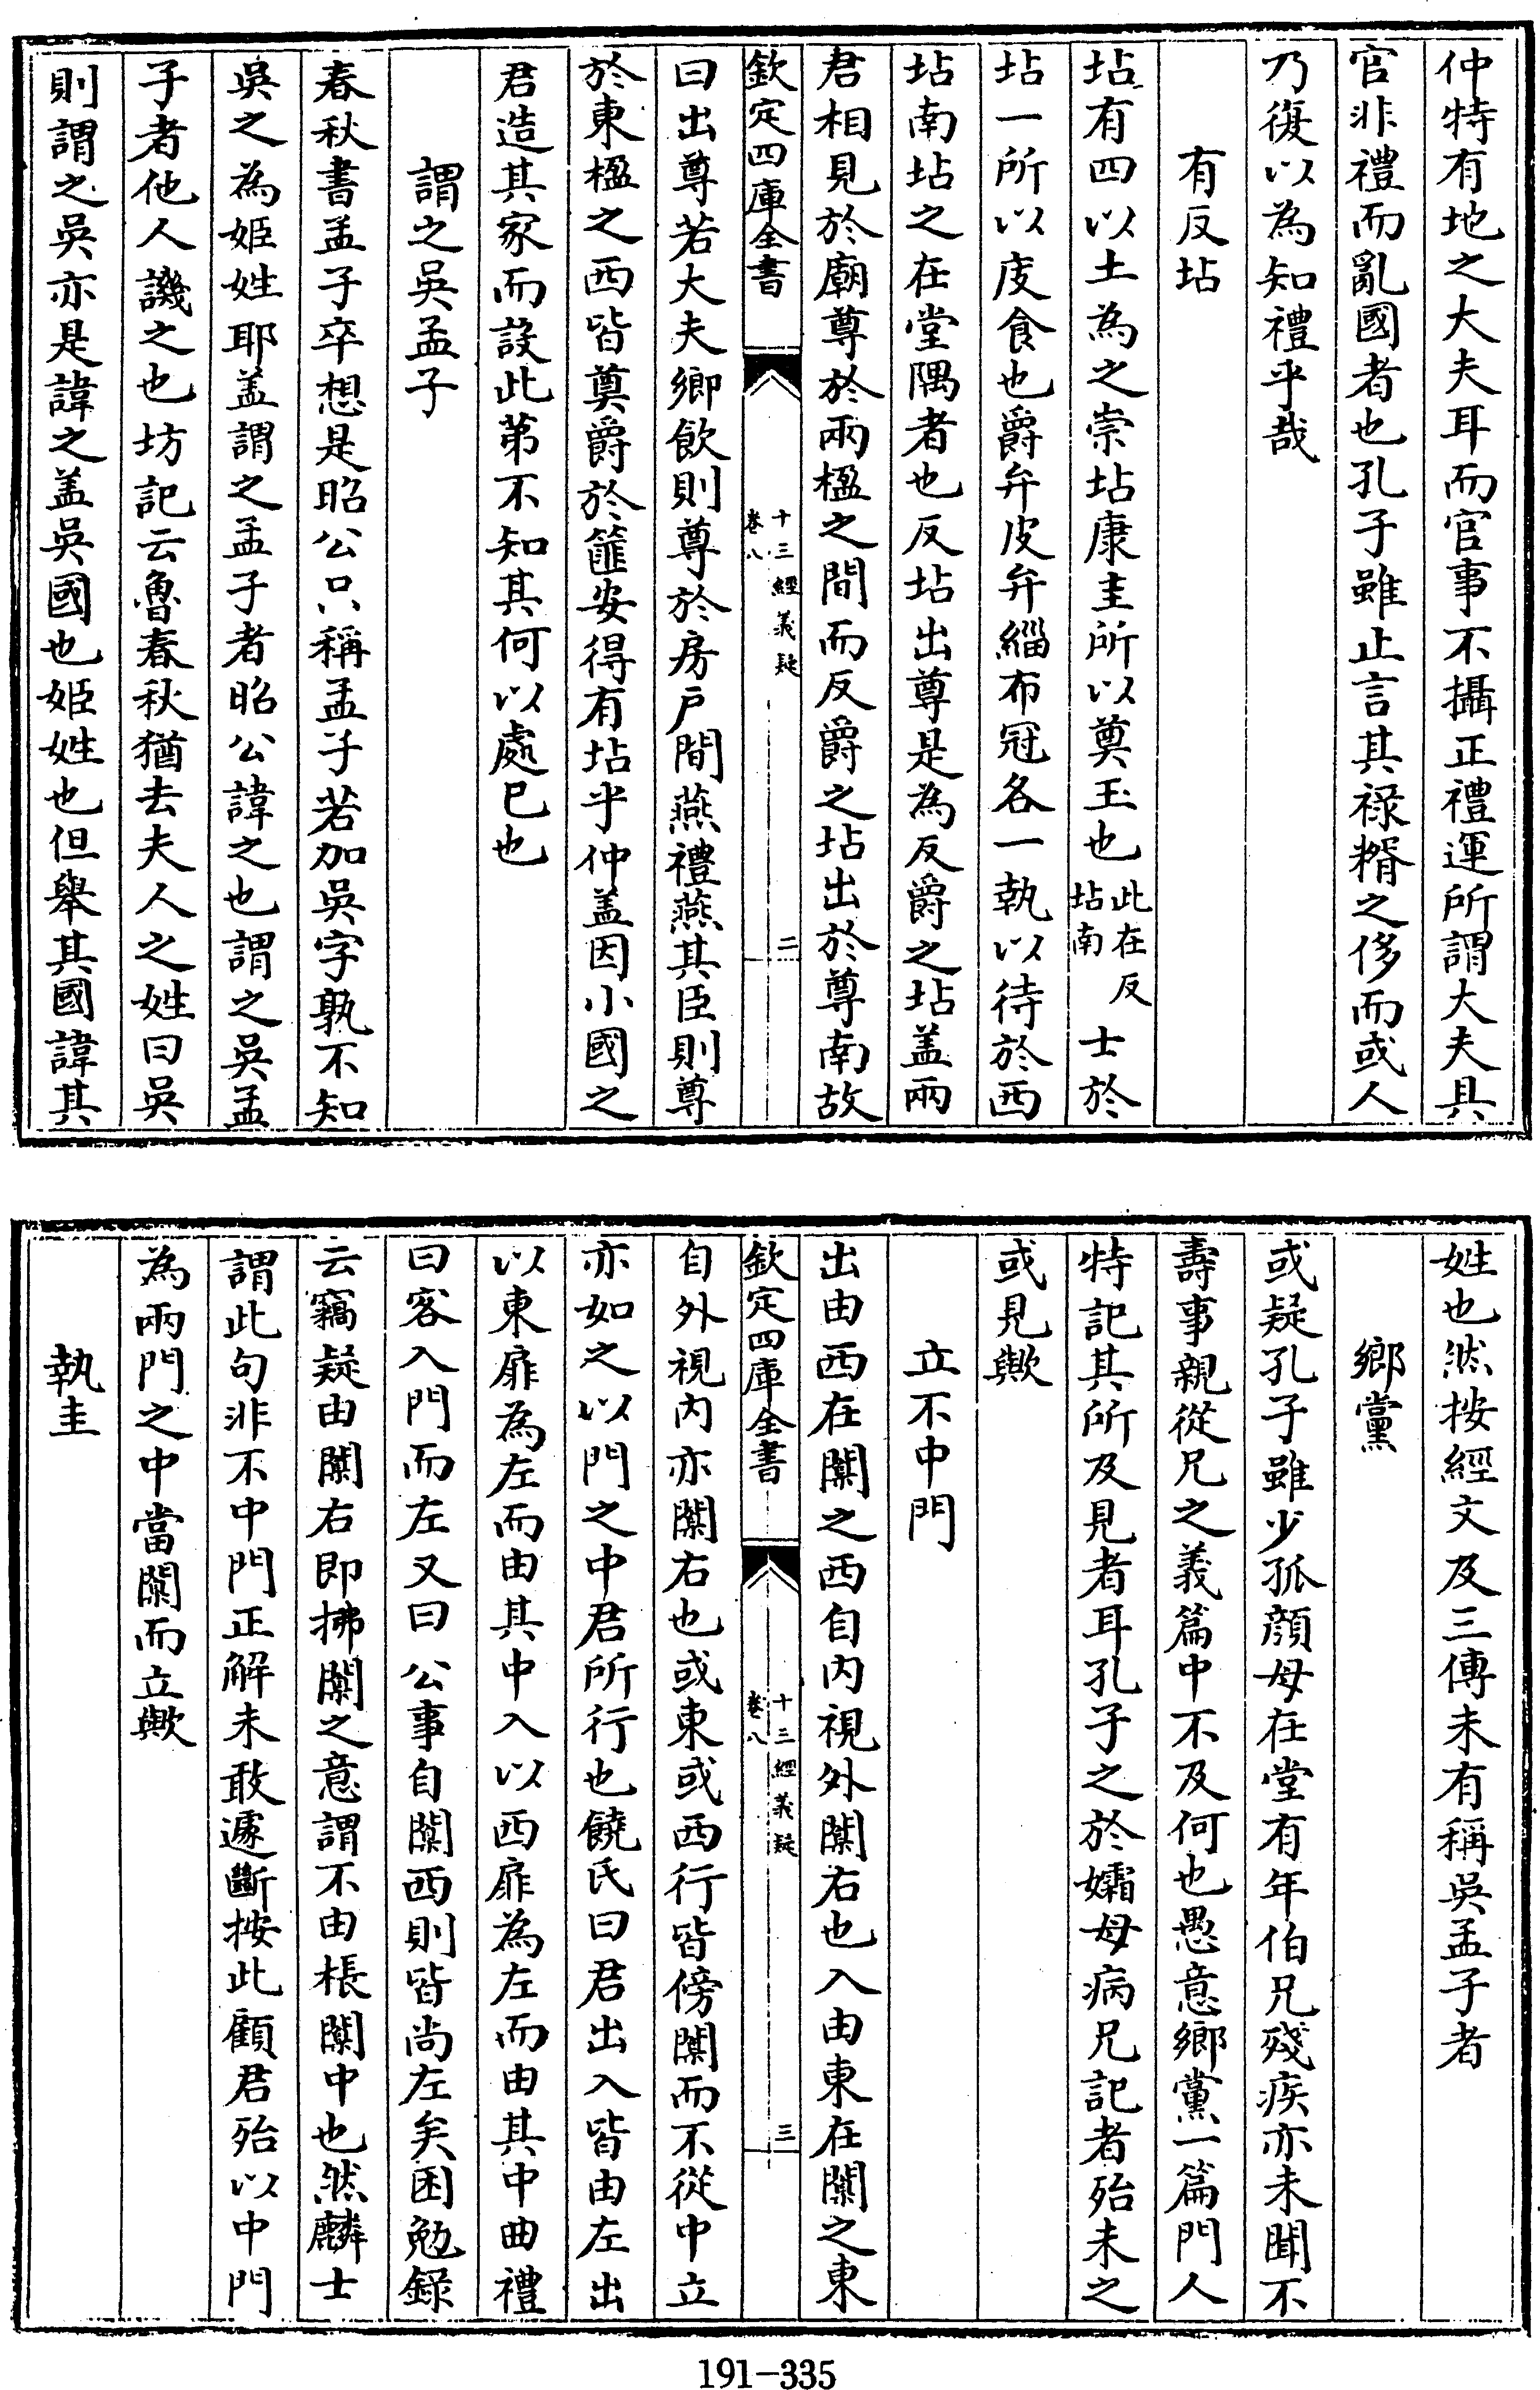 仲特有地之大夫耳而官事不攝正禮運所謂大夫具
官非禮而亂國者也孔子雖止言其祿糈之侈而或人
乃復以為知禮乎哉
有反坫
坫有四以土為之崇坫康圭所以奠玉也此在反坫南士於
坫一所以庋食也爵弁皮弁緇布冠各一執以待於西
坫南坫之在堂隅者也反坫出尊是為反爵之坫盖兩
君相見於廟尊於兩楹之間而反爵之坫出於尊南故
欽定四庫全書
十三經義疑
卷八
二
曰出尊若大夫鄉飲則尊於房戶間燕禮燕其臣則尊
於東楹之西皆奠爵於篚安得有坫乎仲盖因小國之
君造其家而設此第不知其何以處已也
謂之吳孟子
春秋書孟子卒想是昭公只稱孟子若加吳字孰不知
吳之為姬姓耶盖謂之孟子者昭公諱之也謂之吳孟
子者他人譏之也坊記云魯春秋猶去夫人之姓曰吳
則謂之吳亦是諱之盖吳國也姬姓也但舉其國諱其
姓也然按經文及三傳未有稱吳孟子者
鄉黨
或疑孔子雖少孤顔母在堂有年伯兄殘疾亦未聞不
壽事親從兄之義篇中不及何也愚意鄉黨一篇門人
特記其所及見者耳孔子之於孀母病兄記者殆未之
或見歟
立不中門
出由西在闑之西自內視外闑右也入由東在闑之東
欽定四庫全書
十三經義疑
卷八
三
自外視內亦闑右也或東或西行皆傍闑而不從中立
亦如之以門之中君所行也饒氏曰君出入皆由左出
以東扉為左而由其中入以西扉為左而由其中曲禮
曰客入門而左又曰公事自闑西則皆尚左矣困勉錄
云竊疑由闑右即拂闑之意謂不由棖闑中也然麟士
謂此句非不中門正解未敢遽斷按此顧君殆以中門
為兩門之中當闑而立歟
執圭
191-335